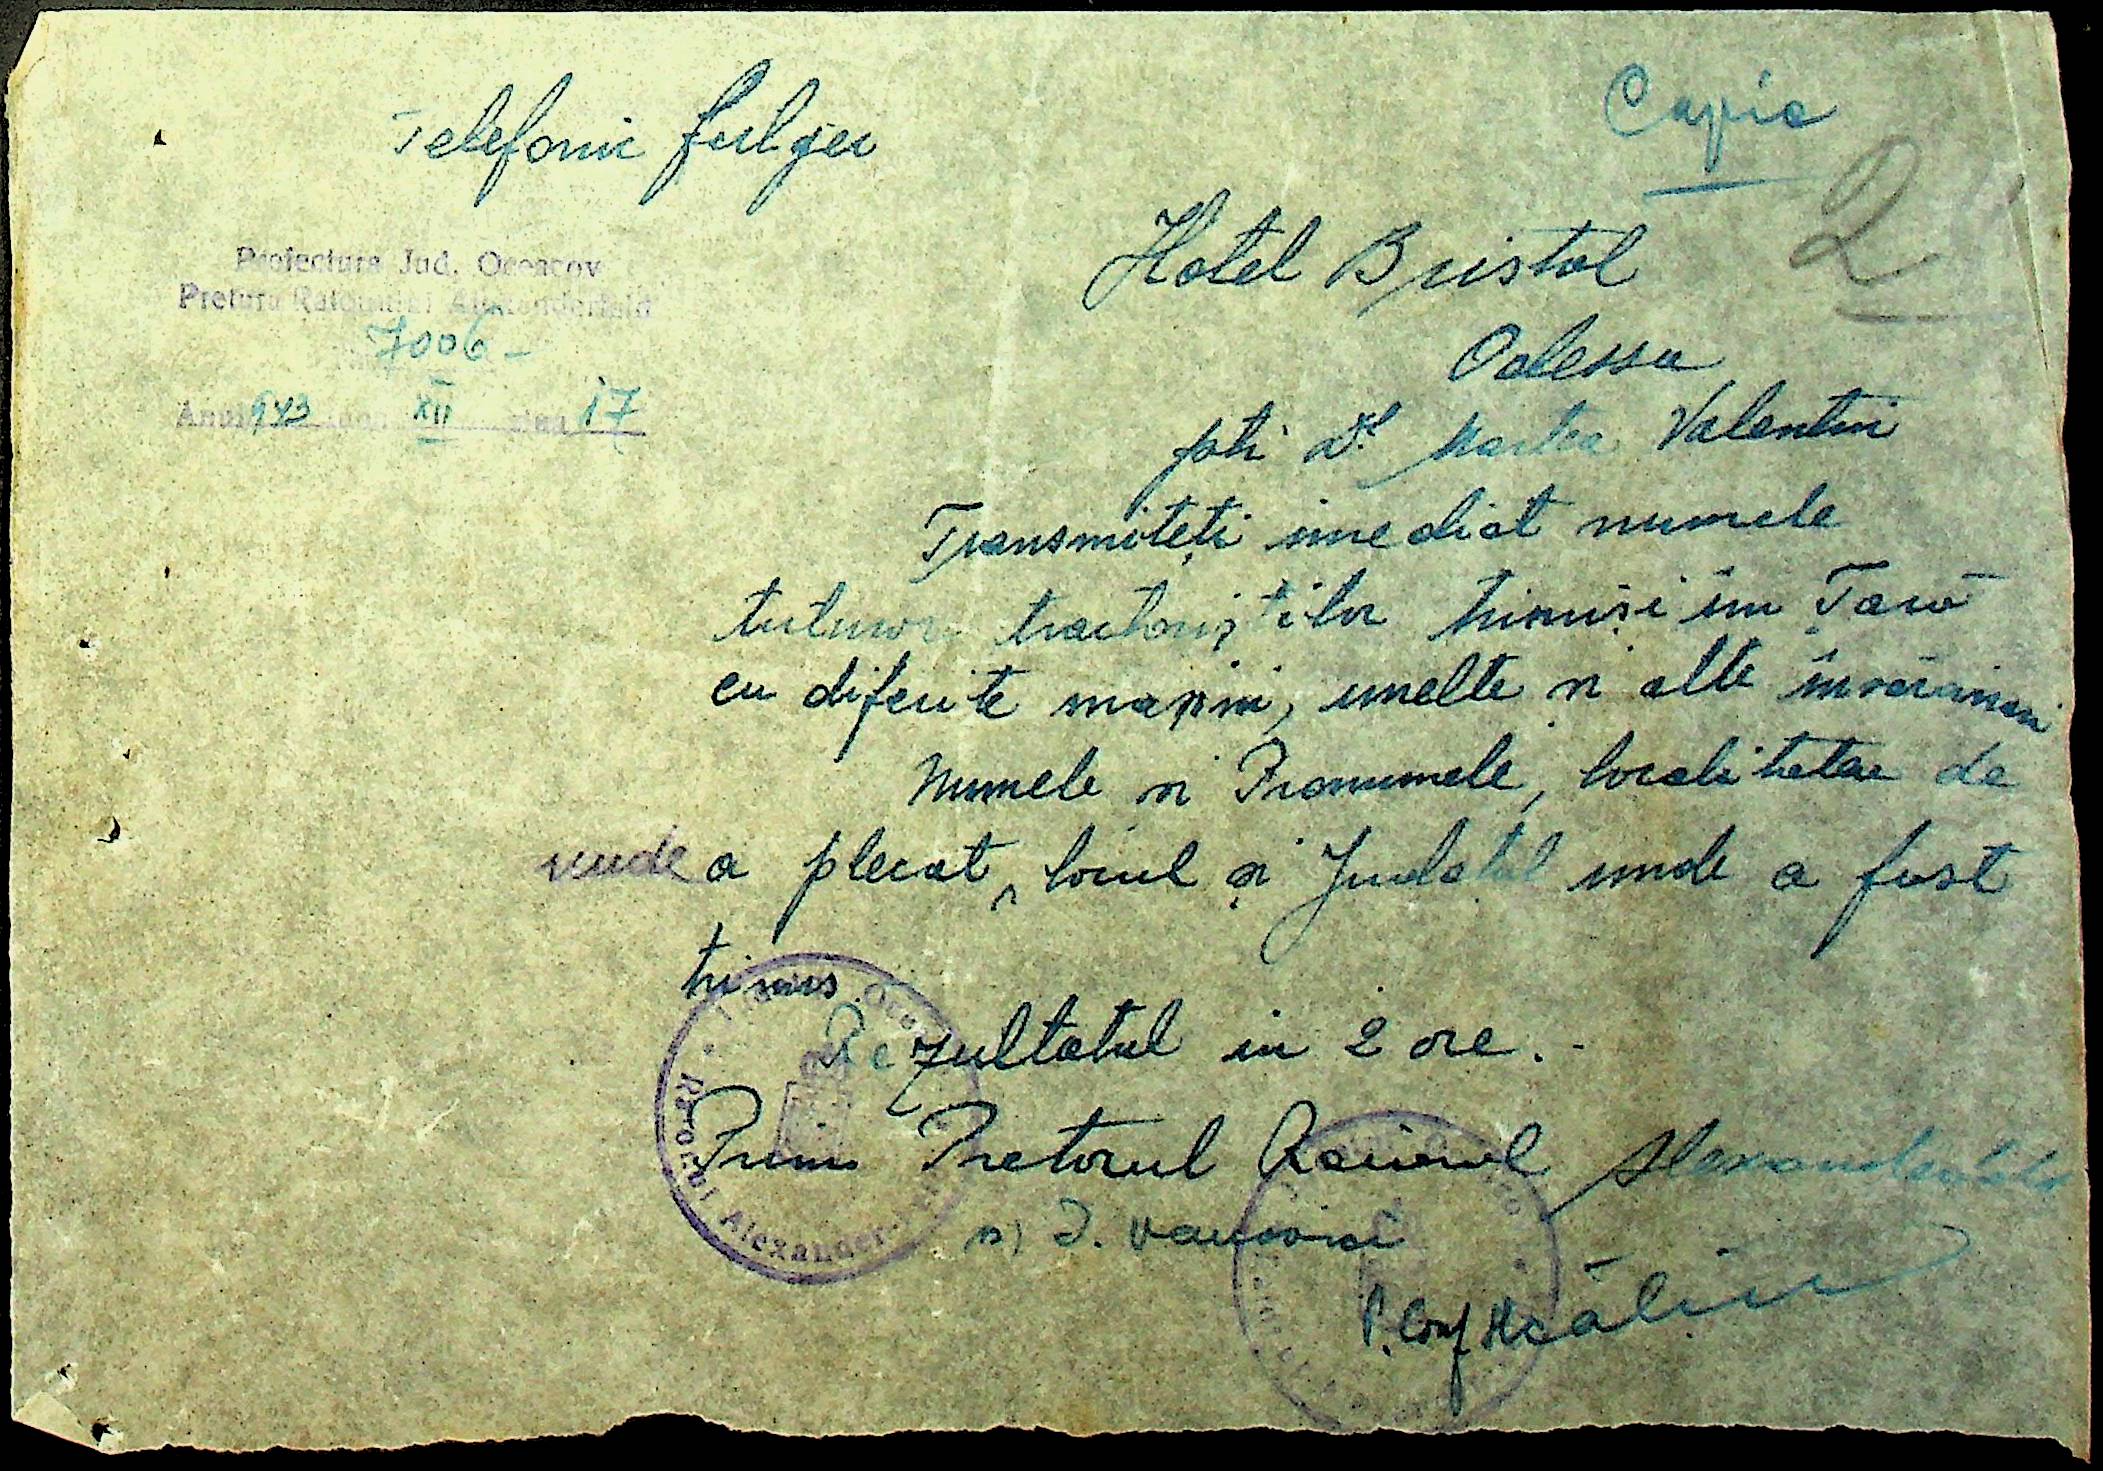 Telefonic fulger
Copie
2
Prefectura Jud. Oceacov
Pretura Raionului Alexanderfeld
7006 -
Anul 943 luna XII ziua 17
Hotel Bristol
Odessa
ptr Dl. Martea Valentin
Transmiteți imediat numele
tuturor tractoriștilor trimiși în Țară
cu diferite mașini, unelte și alte însărcinări
Numele și Pronumele, localitatea de
unde a plecat, locul și Județul unde a fost
trimis.
Rezultatul în 2 ore. -
Prim Pretorul Raionul Alexanderfeld
ss) I.
P. Conf
Raionului Alexander-Feld